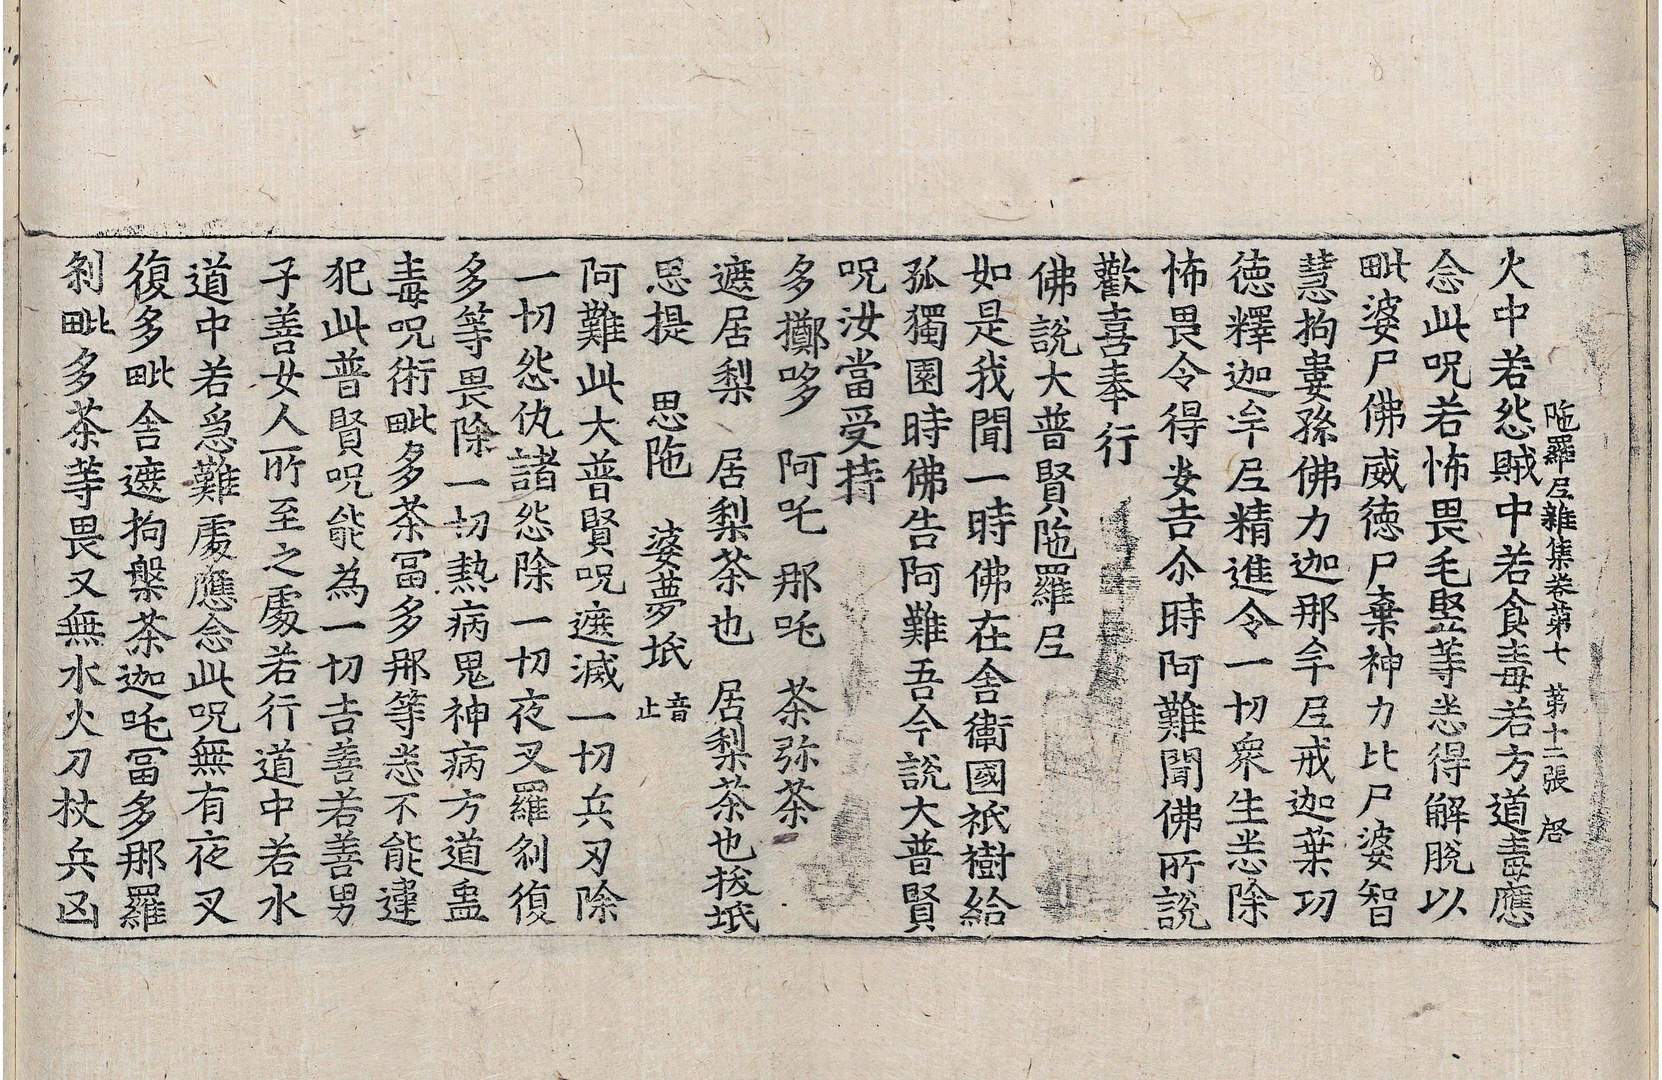 陁羅𡰱雜集卷第七　第十二張　啓
火中若怨賊中若食毒若方道毒應
念此呪若怖畏毛竪等悉得解脫以
毗婆尸佛威德尸棄神力比尸婆智
慧拘妻孫佛力迦那牟𡰱戒迦葉功
德釋迦牟𡰱精進令一切衆生悉除
怖畏令得安吉尒時阿難聞佛所說
歡喜奉行
佛說大普賢陁羅𡰱
如是我聞一時佛在舍衛國祇樹給
孤獨園時佛告阿難吾今說大普賢
呪汝當受持
多擲哆　阿吒　那吒　茶弥茶
遮居梨　居梨茶也　居梨茶也拔坻
思提　思陁　婆夢坻音止
阿難此大普賢呪遮滅一切兵刃除
一切怨仇諸怨除一切夜叉羅刹復
多等畏除一切熱病鬼神病方道蛊
毒呪術毗多茶冨多那等悉不能違
犯此普賢呪能為一切吉善若善男
子善女人所至之處若行道中若水
道中若急難處應念此呪無有夜叉
復多毗舍遮拘槃茶迦吒冨多那羅
刹毗多茶等畏又無水火刀杖兵凶